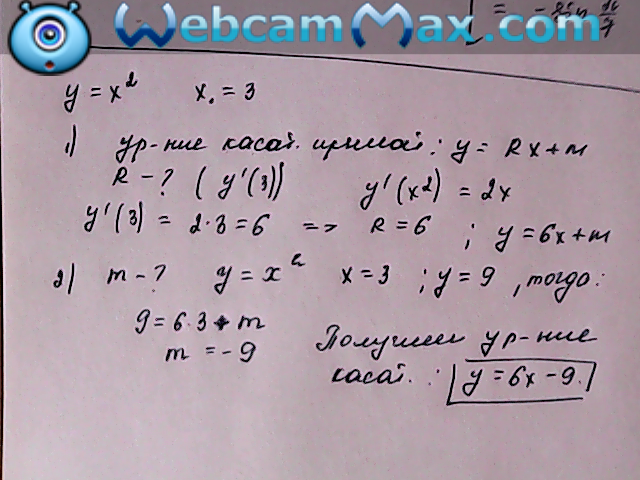 WebcamMax.com
= - sin π/7
y = x² x₀ = 3
1) ур-ние касат. прямой: y = Rx + m
R - ? (y'(3)) y'(x²) = 2x
y'(3) = 2·3 = 6 => R = 6 ; y = 6x + m
2) m - ? y = x² x = 3 ; y = 9 , тогда:
9 = 6·3 + m
m = -9
Получили ур-ние
касат. : y = 6x - 9.